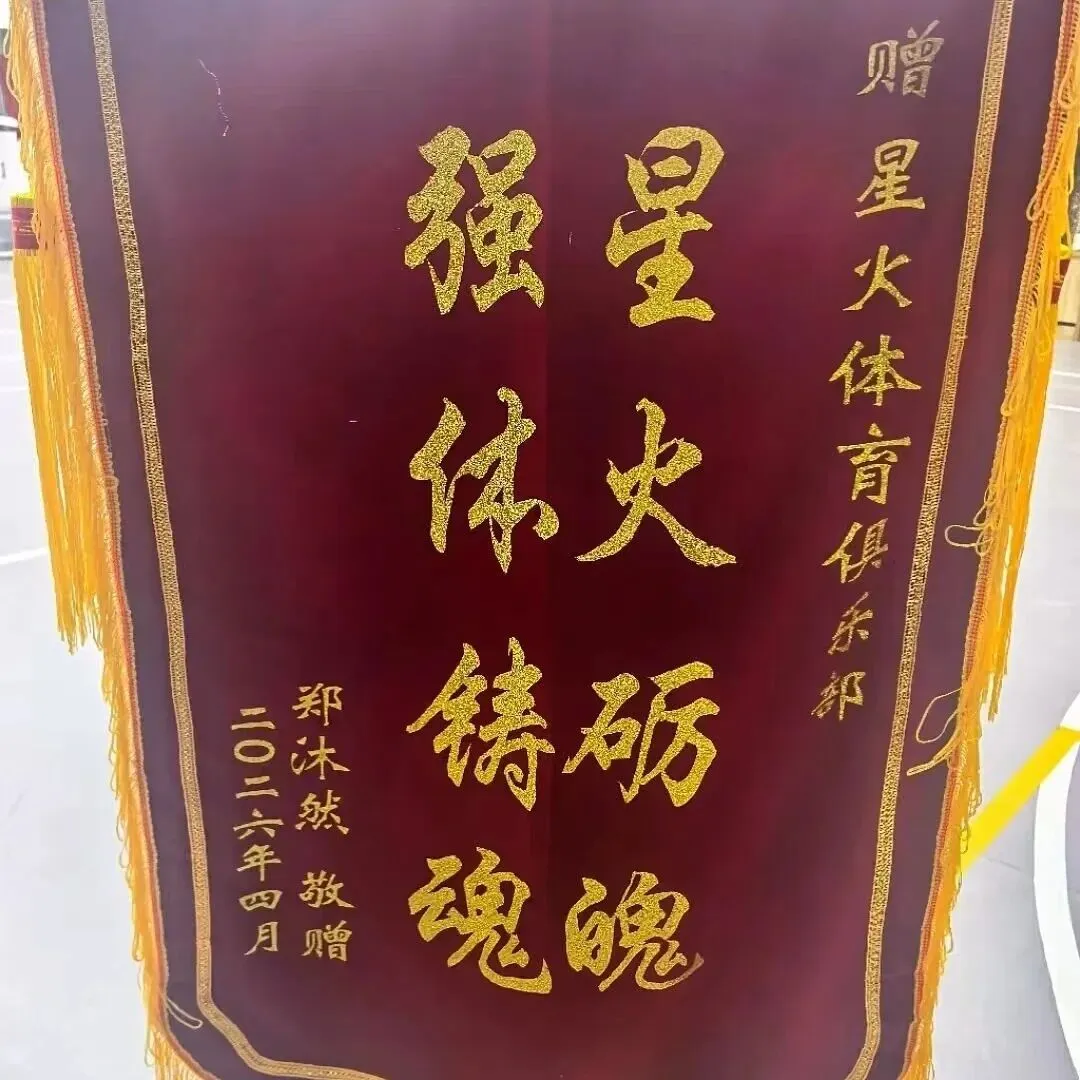 赠星火体育俱乐部
星火砺魄
强体铸魂
郑沐然 敬赠
二〇二六年四月